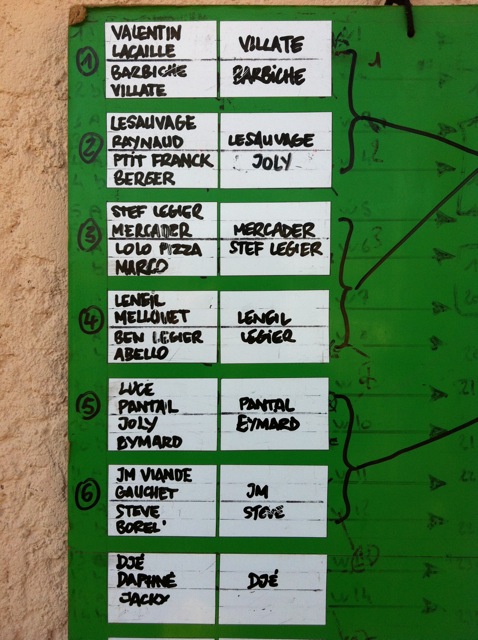 1
VALENTIN
LACAILLE
BARBICHE
VILLATE
VILLATE
BARBICHE
1
2
LESAUVAGE
RAYNAUD
PTIT FRANCK
BERGER
LESAUVAGE
JOLY
3
STEF LEGIER
MERCADER
LOLO PIZZA
MARCO
MERCADER
STEF LEGIER
4
LENEIL
MELLOUET
BEN LEGIER
ABELLO
LENEIL
LEGIER
5
LUCE
PANTAL
JOLY
EYMARD
PANTAL
EYMARD
6
JM VIANDE
GAUCHET
STEVE
BOREL'
JM
STEVE
DJÉ
DAPHNÉ
JACKY
DJÉ